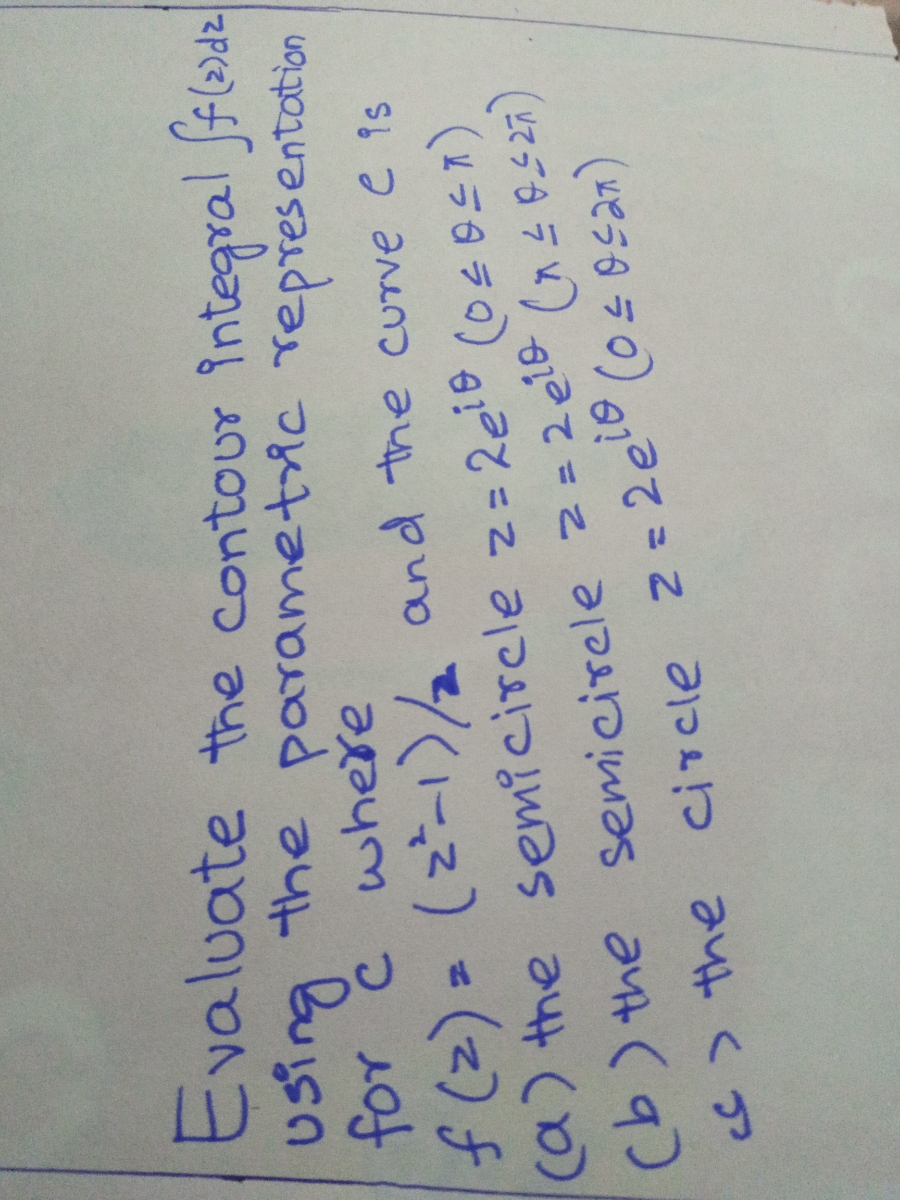 Evaluate the contour integral ∫f(z)dz
using the parametric representation
for c where
f(z) = (z²-1)/z and the curve c is
(a) the semicircle z = 2e^iθ (0 ≤ θ ≤ π)
(b) the semicircle z = 2e^iθ (π ≤ θ ≤ 2π)
c) the circle z = 2e^iθ (0 ≤ θ ≤ 2π)